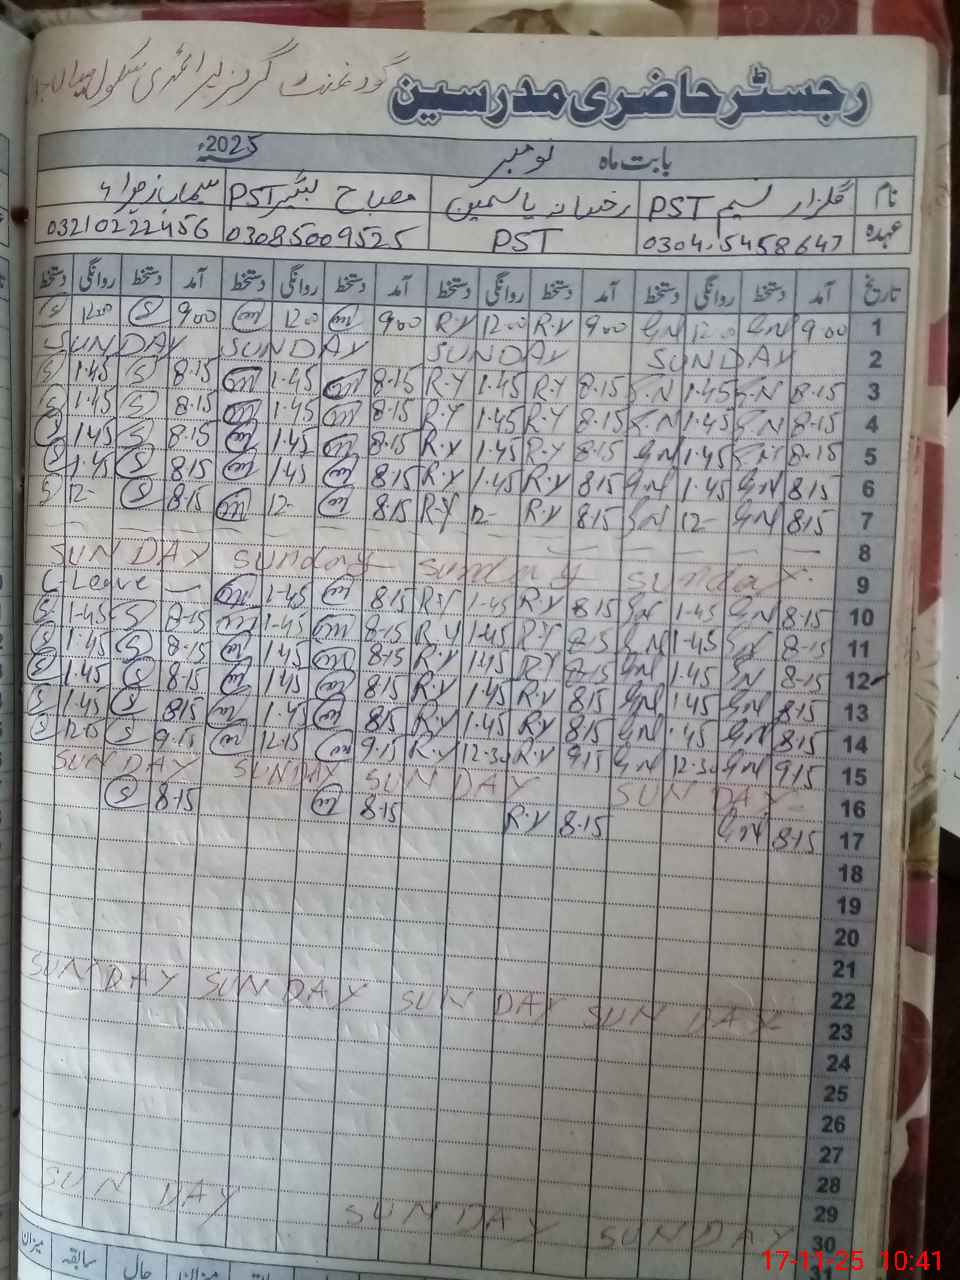 گورنمنٹ گرلز پرائمری سکول
رجسٹر حاضری مدرسین
بابت ماہ نومبر 2025ء
نام گلزار نسیم PST رخسانہ یاسمین مصباح PST
عہدہ 0304.5458647 PST 03085009525 03210222456
تاریخ آمد دستخط روانگی دستخط آمد دستخط روانگی دستخط آمد دستخط روانگی دستخط آمد دستخط روانگی دستخط
1 9.00 G.N 12.00 G.N 9.00 R.Y 12.00 R.Y 9.00 m 12.00 m 9.00 S 12.00 S
2 SUNDAY SUNDAY SUNDAY SUNDAY
3 8.15 G.N 1.45 G.N 8.15 R.Y 1.45 R.Y 8.15 m 1.45 m 8.15 S 1.45 S
4 8.15 G.N 1.45 G.N 8.15 R.Y 1.45 R.Y 8.15 m 1.45 m 8.15 S 1.45 S
5 8.15 G.N 1.45 G.N 8.15 R.Y 1.45 R.Y 8.15 m 1.45 m 8.15 S 1.45 S
6 8.15 G.N 1.45 G.N 8.15 R.Y 1.45 R.Y 8.15 m 1.45 m 8.15 S 1.45 S
7 8.15 G.N 12- G.N 8.15 R.Y 12- R.Y 8.15 m 12- m 8.15 S 12- S
8
9 Sunday Sunday Sunday SUNDAY
10 8.15 G.N 1.45 G.N 8.15 R.Y 1.45 R.Y 8.15 m 1.45 m C-Leave
11 8.15 G.N 1.45 G.N 8.15 R.Y 1.45 R.Y 8.15 m 1.45 m 8.15 S 1.45 S
12 8.15 G.N 1.45 G.N 8.15 R.Y 1.45 R.Y 8.15 m 1.45 m 8.15 S 1.45 S
13 8.15 G.N 1.45 G.N 8.15 R.Y 1.45 R.Y 8.15 m 1.45 m 8.15 S 1.45 S
14 8.15 G.N 1.45 G.N 8.15 R.Y 1.45 R.Y 8.15 m 1.45 m 8.15 S 1.45 S
15 9.15 G.N 12.30 G.N 9.15 R.Y 12.30 R.Y 9.15 m 12.15 m 9.15 S 12.15 S
16 SUNDAY SUNDAY SUNDAY SUNDAY
17 8.15 G.N 8.15 R.Y 8.15 m 8.15 S
18
19
20
21
22
23 SUNDAY SUNDAY SUNDAY SUNDAY
24
25
26
27
28
29
30 SUNDAY SUNDAY SUNDAY
میزان سابقہ حال میزان
17-11-25 10:41